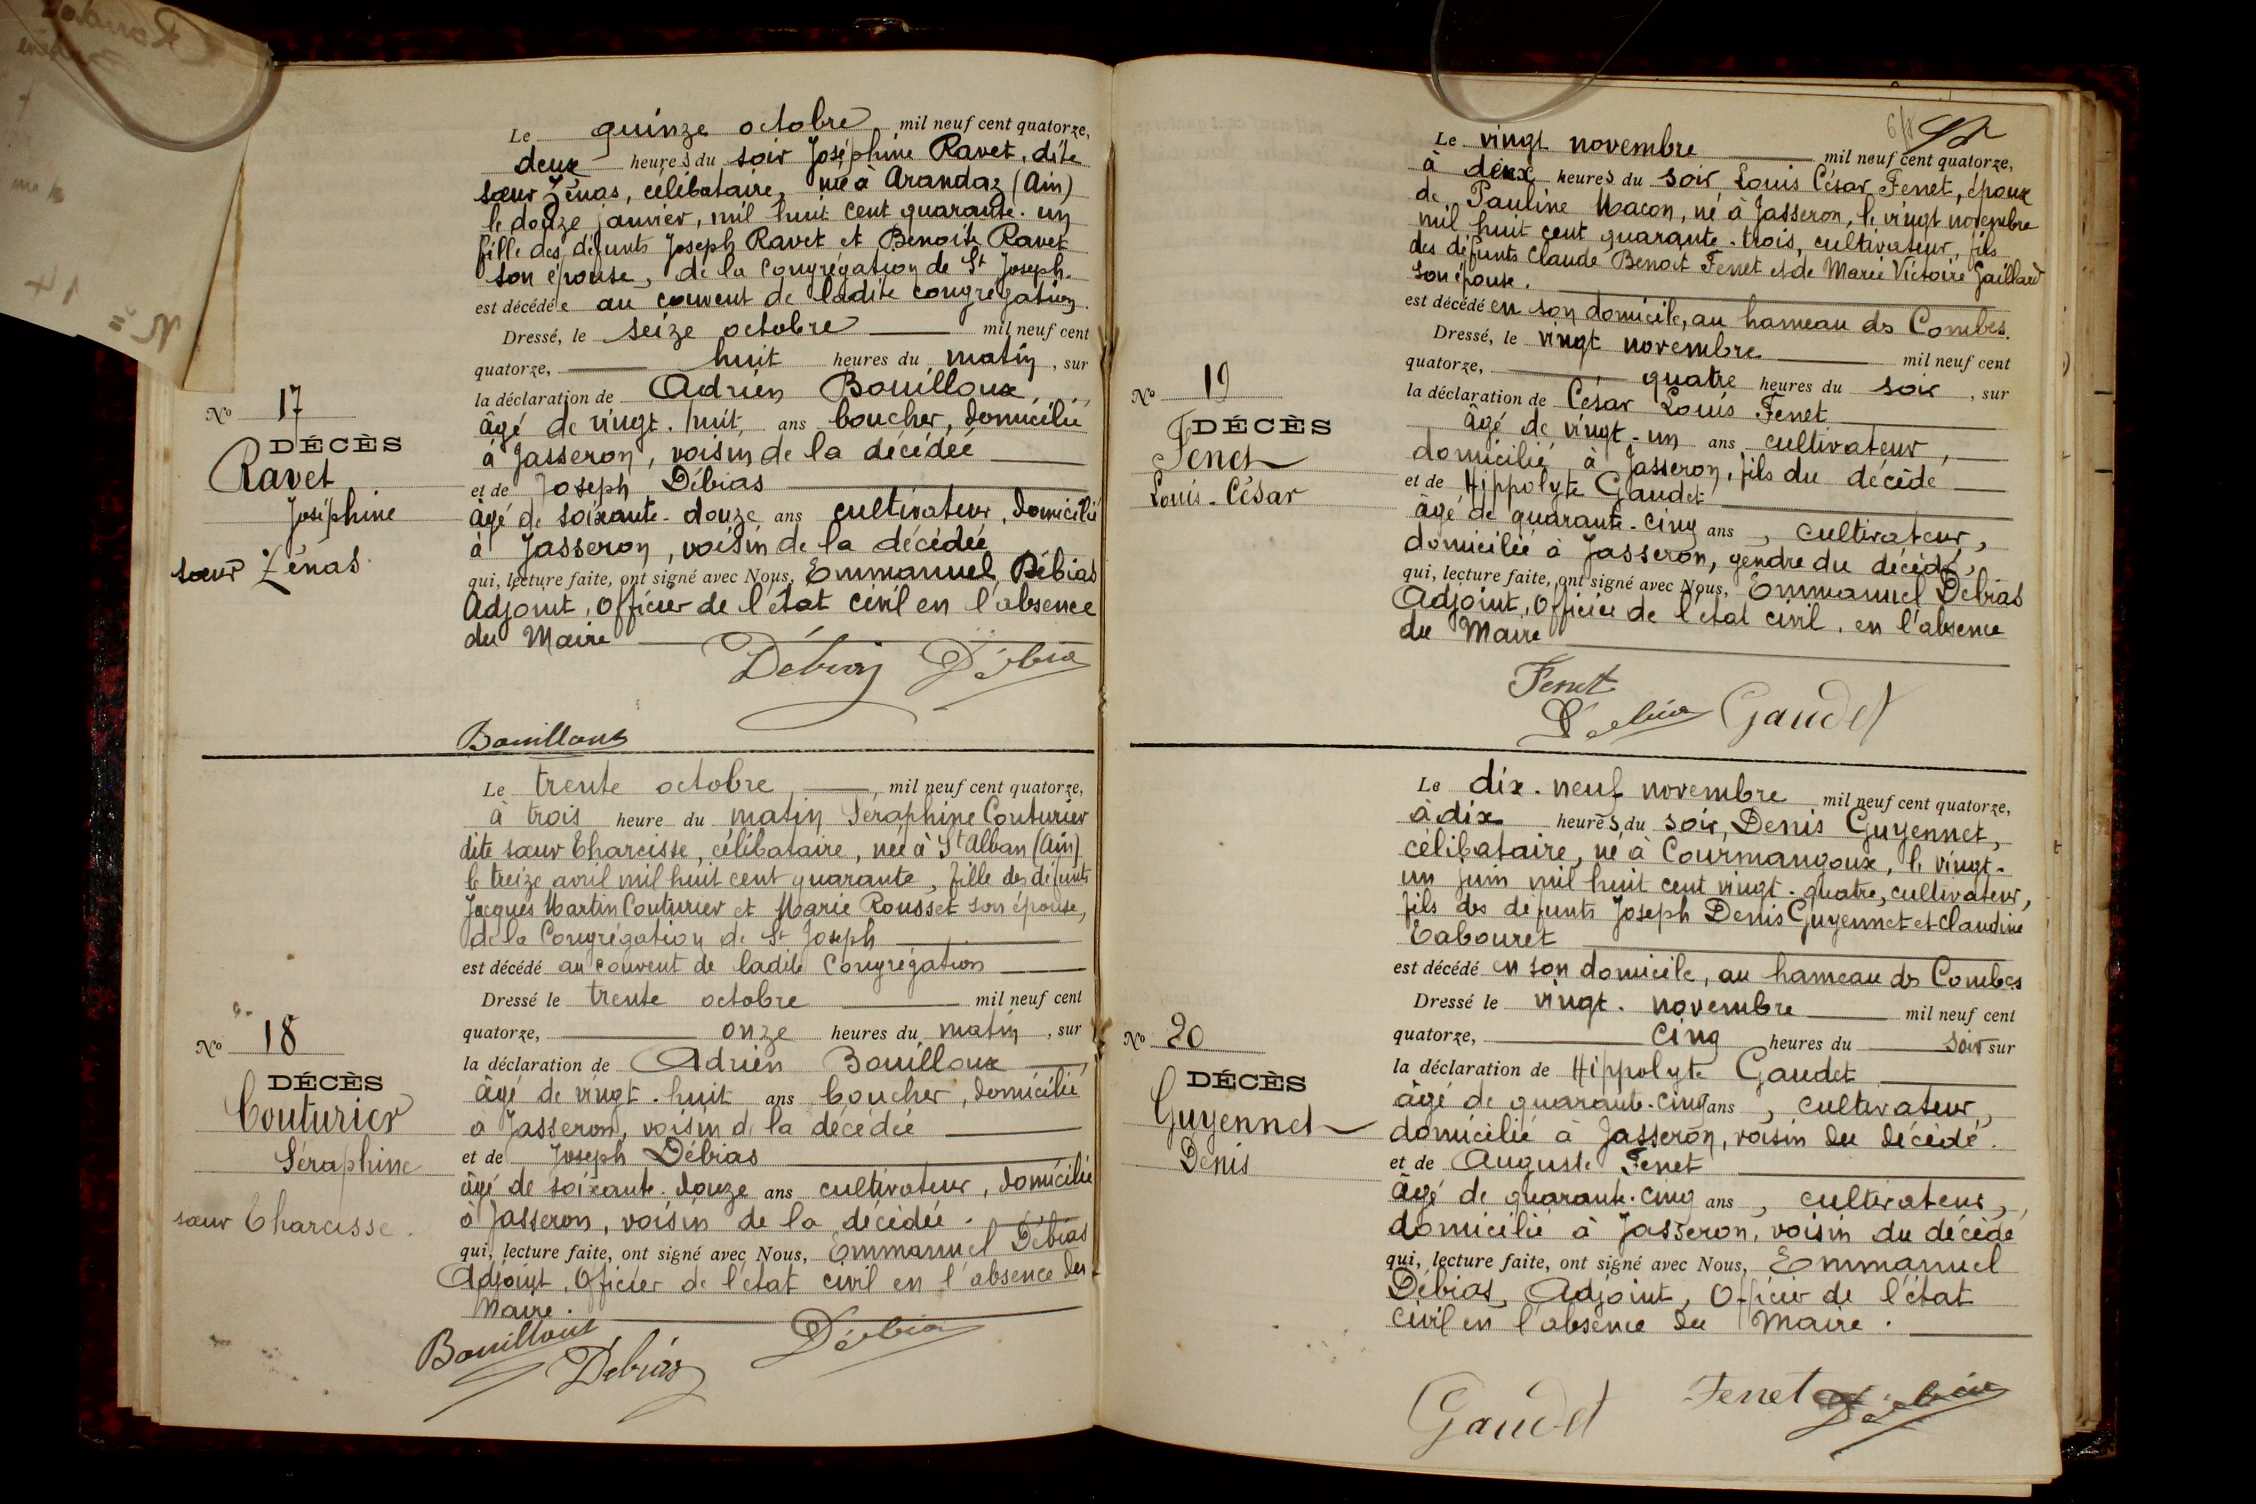 N° 17
DÉCÈS
Ravet
Joséphine
sœur Zénas
Le quinze octobre mil neuf cent quatorze,
deux heures du soir Joséphine Ravet, dite
sœur Zénas, célibataire, née à Arandaz (Ain)
le douze janvier, mil huit cent quarante-un
fille des défunts Joseph Ravet et Benoite Ravet
son épouse, de la Congrégation de St Joseph.
est décédée au couvent de ladite congrégation.
Dressé, le seize octobre mil neuf cent
quatorze, huit heures du matin, sur
la déclaration de Adrien Bouilloux,
âgé de vingt-huit ans boucher, domicilié
à Jasseron, voisin de la décédée
et de Joseph Débias
âgé de soixante-douze ans cultivateur, domicilié
à Jasseron, voisin de la décédée
qui, lecture faite, ont signé avec Nous, Emmanuel Débias
Adjoint, Officier de l'état civil en l'absence
du Maire
Débias Débias
Bouilloux
N° 18
DÉCÈS
Couturier
Séraphine
sœur Tharcisse.
Le trente octobre, mil neuf cent quatorze,
à trois heure du matin Séraphine Couturier
dite sœur Tharcisse, célibataire, née à St Alban (Ain)
le treize avril mil huit cent quarante, fille des défunts
Jacques Martin Couturier et Marie Rousset son épouse,
de la Congrégation de St Joseph
est décédé au couvent de ladite Congrégation
Dressé le trente octobre mil neuf cent
quatorze, onze heures du matin, sur
la déclaration de Adrien Bouilloux,
âgé de vingt-huit ans boucher, domicilié
à Jasseron, voisin de la décédée
et de Joseph Débias
âgé de soixante-douze ans cultivateur, domicilié
à Jasseron, voisin de la décédée.
qui, lecture faite, ont signé avec Nous, Emmanuel Débias
Adjoint, Officier de l'état civil en l'absence du
Maire.
Bouilloux Debias Débias
N° 19
DÉCÈS
Fenet
Louis-César
Le vingt novembre mil neuf cent quatorze,
à deux heures du soir, Louis César Fenet, époux
de Pauline Macon, né à Jasseron, le vingt novembre
mil huit cent quarante-trois, cultivateur, fils
des défunts Claude Benoit Fenet et de Marie Victoire Gaillard
son épouse.
est décédé en son domicile, au hameau des Combes.
Dressé, le vingt novembre mil neuf cent
quatorze, quatre heures du soir, sur
la déclaration de César Louis Fenet
âgé de vingt-un ans cultivateur,
domicilié à Jasseron, fils du décédé
et de Hippolyte Gaudet
âgé de quarante-cinq ans, cultivateur,
domicilié à Jasseron, gendre du décédé,
qui, lecture faite, ont signé avec Nous, Emmanuel Débias
Adjoint, Officier de l'état civil, en l'absence
du Maire
Fenet
Débias Gaudet
N° 20
DÉCÈS
Guyennet
Denis
Le dix-neuf novembre mil neuf cent quatorze,
à dix heures du soir, Denis Guyennet,
célibataire, né à Courmangoux, le vingt-
un juin mil huit cent vingt-quatre, cultivateur,
fils des défunts Joseph Denis Guyennet et Claudine
Tabouret
est décédé en son domicile, au hameau des Combes
Dressé le vingt novembre mil neuf cent
quatorze, cinq heures du soir sur
la déclaration de Hippolyte Gaudet
âgé de quarante-cinq ans, cultivateur,
domicilié à Jasseron, voisin du décédé.
et de Auguste Fenet
âgé de quarante-cinq ans, cultivateur,
domicilié à Jasseron, voisin du décédé
qui, lecture faite, ont signé avec Nous, Emmanuel
Débias, Adjoint, Officier de l'état
civil en l'absence du Maire.
Gaudet Fenet Débias